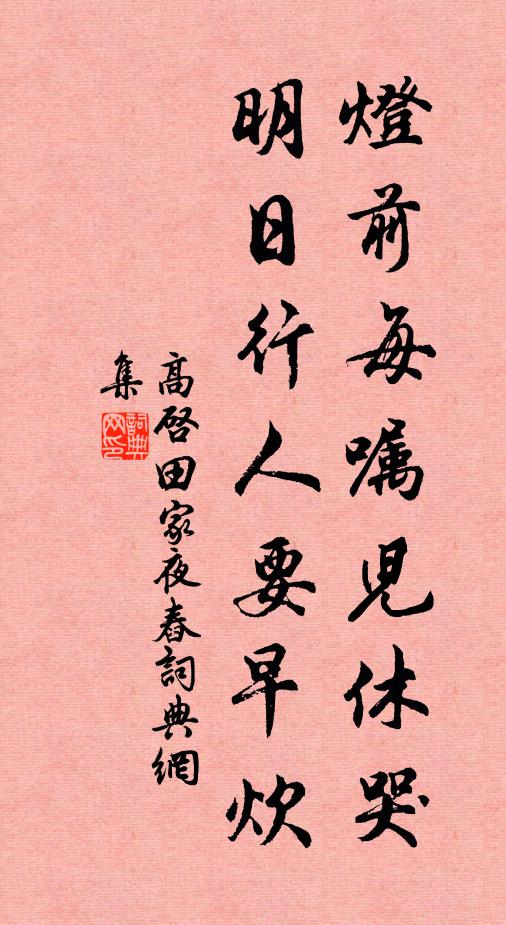 燈前每嘱兒休哭
明日行人要早炊
高啓田家夜舂詞典網
集
詞典网印